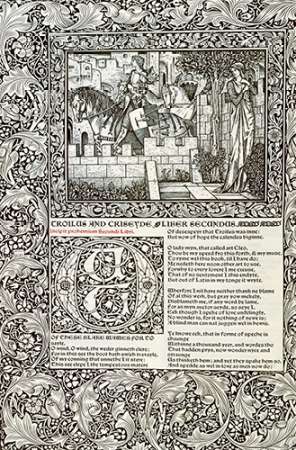 TROILUS AND CRISEYDE LIBER SECUNDUS
Incipit prohemium Secundi Libri.
OF THESE BLAKE WAWES FOR TO
saylle,
O wind, O wind, the weder ginneth clere;
For in this see the boot hath swich travaylle,
Of my conning that unnethe I it stere:
This see clepe I the tempestous matere
Of desespeyr that Troilus was inne:
But now of hope the calendes biginne.
O lady myn, that called art Cleo,
Thou be my speed fro this forth, & my muse,
To ryme wel this book, til I have do;
Me nedeth here noon other art to use.
Forwhy to every lovere I me excuse,
That of no sentement I this endyte,
But out of Latin in my tonge it wryte.
Wherfore I nil have neither thank ne blame
Of al this werk, but pray yow mekely,
Disblameth me, if any word be lame,
For as myn auctor seyde, so seye I.
Eek though I speke of love unfelingly,
No wonder is, for it nothing of newe is;
A blind man can not juggen wel in hewis.
Ye knowe eek, that in forme of speche is
chaunge
Withinne a thousand yeer, and wordes tho
That hadden prys, now wonder nyce and
straunge
Us thinketh hem; and yet they spake hem so,
And spedde as wel in love as men now do;